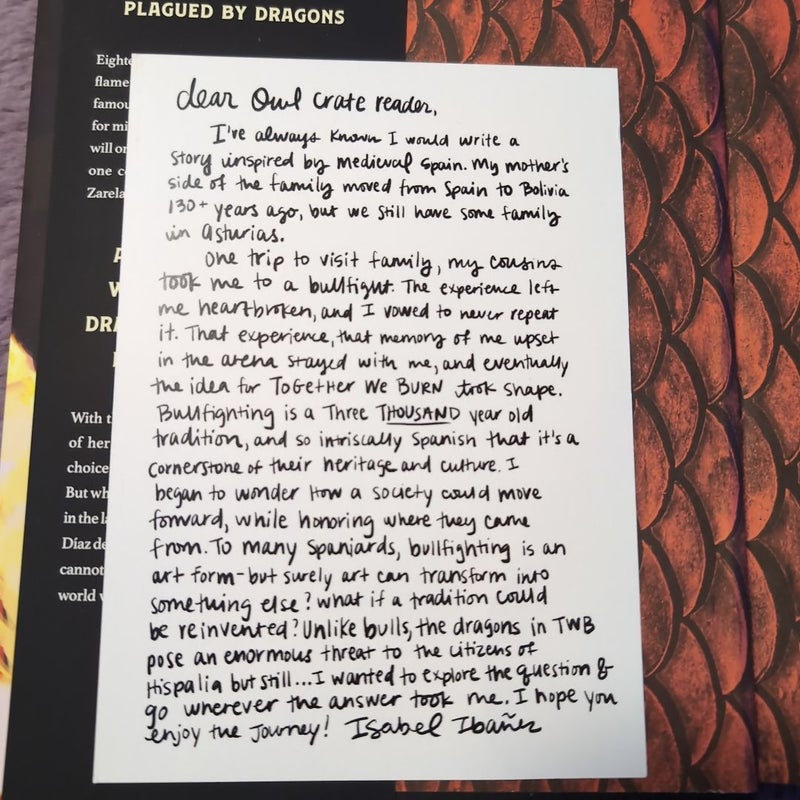 PLAGUED BY DRAGONS
flame
famou
for mi
will or
one c
Zarela
A
W
DRA
With t
of her
choice
But wh
in the l
Díaz de
cannot
world w
dear Owl Crate reader,
I've always known I would write a
story inspired by medieval Spain. My mother's
side of the family moved from Spain to Bolivia
130+ years ago, but we still have some family
in Asturias.
One trip to visit family, my cousins
took me to a bullfight. The experience left
me heartbroken, and I vowed to never repeat
it. That experience, that memory of me upset
in the arena stayed with me, and eventually
the idea for ToGether We BURN took shape.
Bullfighting is a Three THOUSAND year old
tradition, and so intriscally Spanish that it's a
cornerstone of their heritage and culture. I
began to wonder how a society could move
forward, while honoring where they came
from. To many Spaniards, bullfighting is an
art form-but surely art can transform into
something else? What if a tradition could
be reinvented? Unlike bulls, the dragons in TWB
pose an enormous threat to the citizens of
Hispalia but still... I wanted to explore the question &
go wherever the answer took me. I hope you
enjoy the journey! Isabel Ibañez